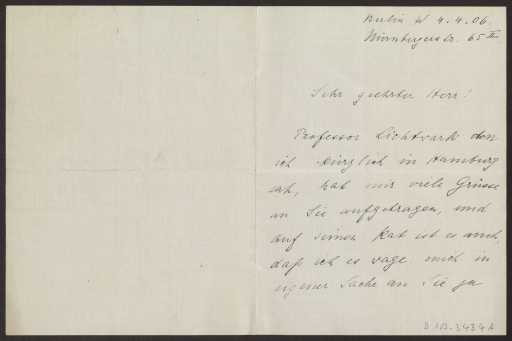 Berlin W 4.4.06.
Nürnbergerstr. 65 III
Sehr geehrter Herr!
Professor Lichtwark den
ich kürzlich in Hamburg
sah, hat mir viele Grüsse
an Sie aufgetragen, und
auf seinen Rat ist es auch,
daß ich es wage mich in
eigener Sache an Sie zu